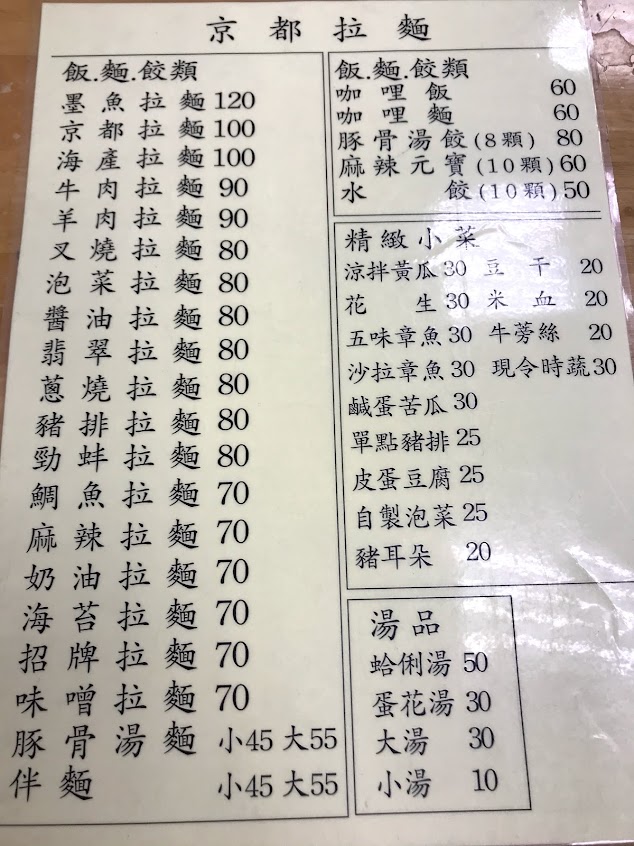 京都拉麵
飯.麵.餃類
墨魚拉麵 120
京都拉麵 100
海產拉麵 100
牛肉拉麵 90
羊肉拉麵 90
叉燒拉麵 80
泡菜拉麵 80
醬油拉麵 80
翡翠拉麵 80
蔥燒拉麵 80
豬排拉麵 80
勁蚌拉麵 80
鯛魚拉麵 70
麻辣拉麵 70
奶油拉麵 70
海苔拉麵 70
招牌拉麵 70
味噌拉麵 70
豚骨湯麵 小45 大55
伴麵 小45 大55
飯.麵.餃類
咖哩飯 60
咖哩麵 60
豚骨湯餃(8顆) 80
麻辣元寶(10顆) 60
水餃(10顆) 50
精緻小菜
涼拌黃瓜 30 豆干 20
花生 30 米血 20
五味章魚 30 牛蒡絲 20
沙拉章魚 30 現令時蔬 30
鹹蛋苦瓜 30
單點豬排 25
皮蛋豆腐 25
自製泡菜 25
豬耳朵 20
湯品
蛤俐湯 50
蛋花湯 30
大湯 30
小湯 10